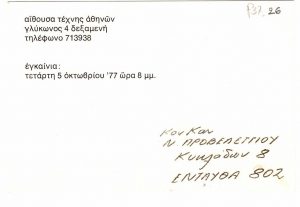 P37. 26
αίθουσα τέχνης άθηνών
γλύκωνος 4 δεξαμενή
τηλέφωνο 713938
έγκαίνια:
τετάρτη 5 όκτωβρίου '77 ώρα 8 μμ.
Κον Καν
Ν. ΠΡΟΒΕΛΕΓΓΙΟΥ
Κυκλάδων 8
ΕΝΤΑΥΘΑ 802